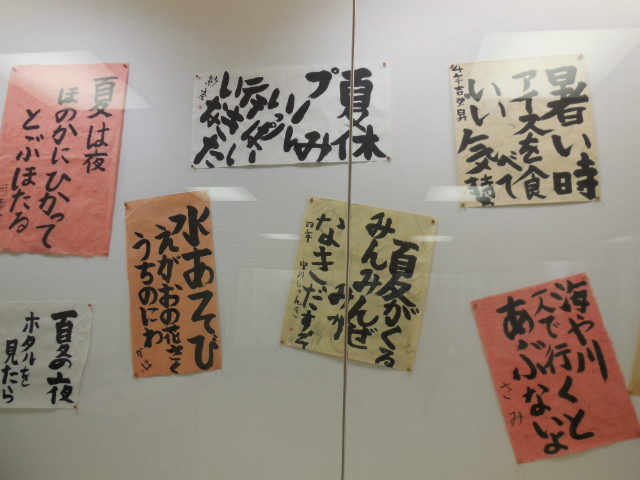 夏は夜
ほのかにひかって
とぶほたる
夏休み
プール
いっぱい
いきたいな
暑い時
アイスを食べて
いい気持
水あそび
えがおの花さく
うちのにわ
夏がくる
みんみんぜみが
なきだすぞ
四年
海や川
一人で行くと
あぶないよ
さみ
夏の夜
ホタルを
見たら